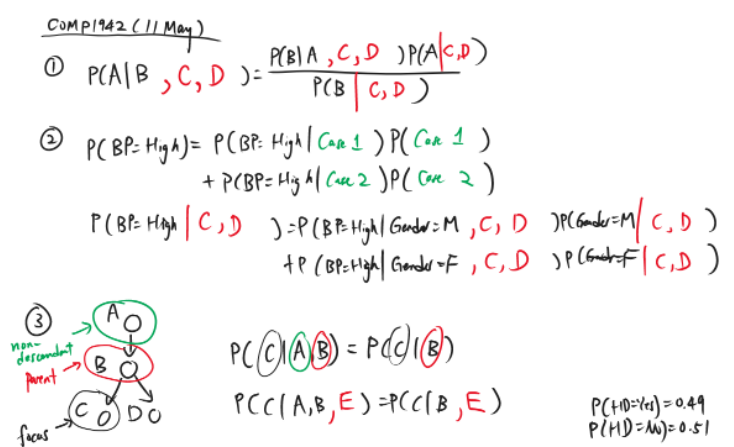 COMP1942 (11 May)
① P(A|B , C, D ) = P(B|A , C, D )P(A|C,D) / P(B | C, D )
② P(BP=High) = P(BP=High|Case 1 )P(Case 1 )
+ P(BP=High|Case 2 )P(Case 2 )
P(BP=High | C, D ) = P(BP=High|Gender=M , C, D )P(Gender=M | C, D )
+ P(BP=High|Gender=F , C, D )P(Gender=F | C, D )
③
A
non-descendant
B
parent
C D
focus
P(C|A,B) = P(C|B)
P(C|A,B, E) = P(C|B, E)
P(HD=Yes) = 0.49
P(HD=No) = 0.51